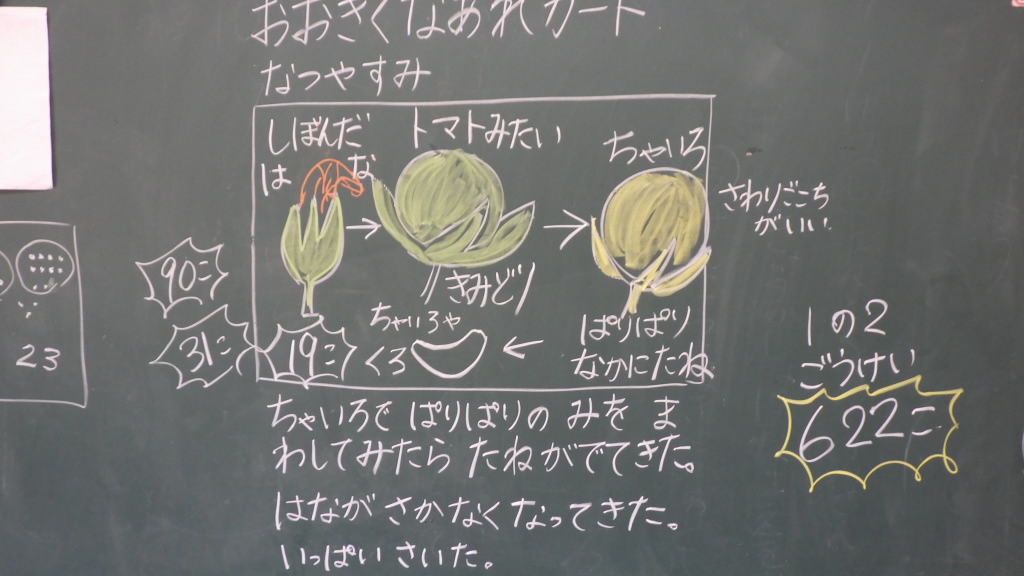 おおきくなあれカード
なつやすみ
しぼんだ
はな
トマトみたい
ちゃいろ
さわりごこち
がいい
きみどり
90こ
31こ
19こ
ちゃいろや
くろ
ぱりぱり
なかにたね
23
1の2
ごうけい
622こ
ちゃいろで ぱりぱりの みを ま
わしてみたら たねがでてきた。
はなが さかなくなってきた。
いっぱい さいた。